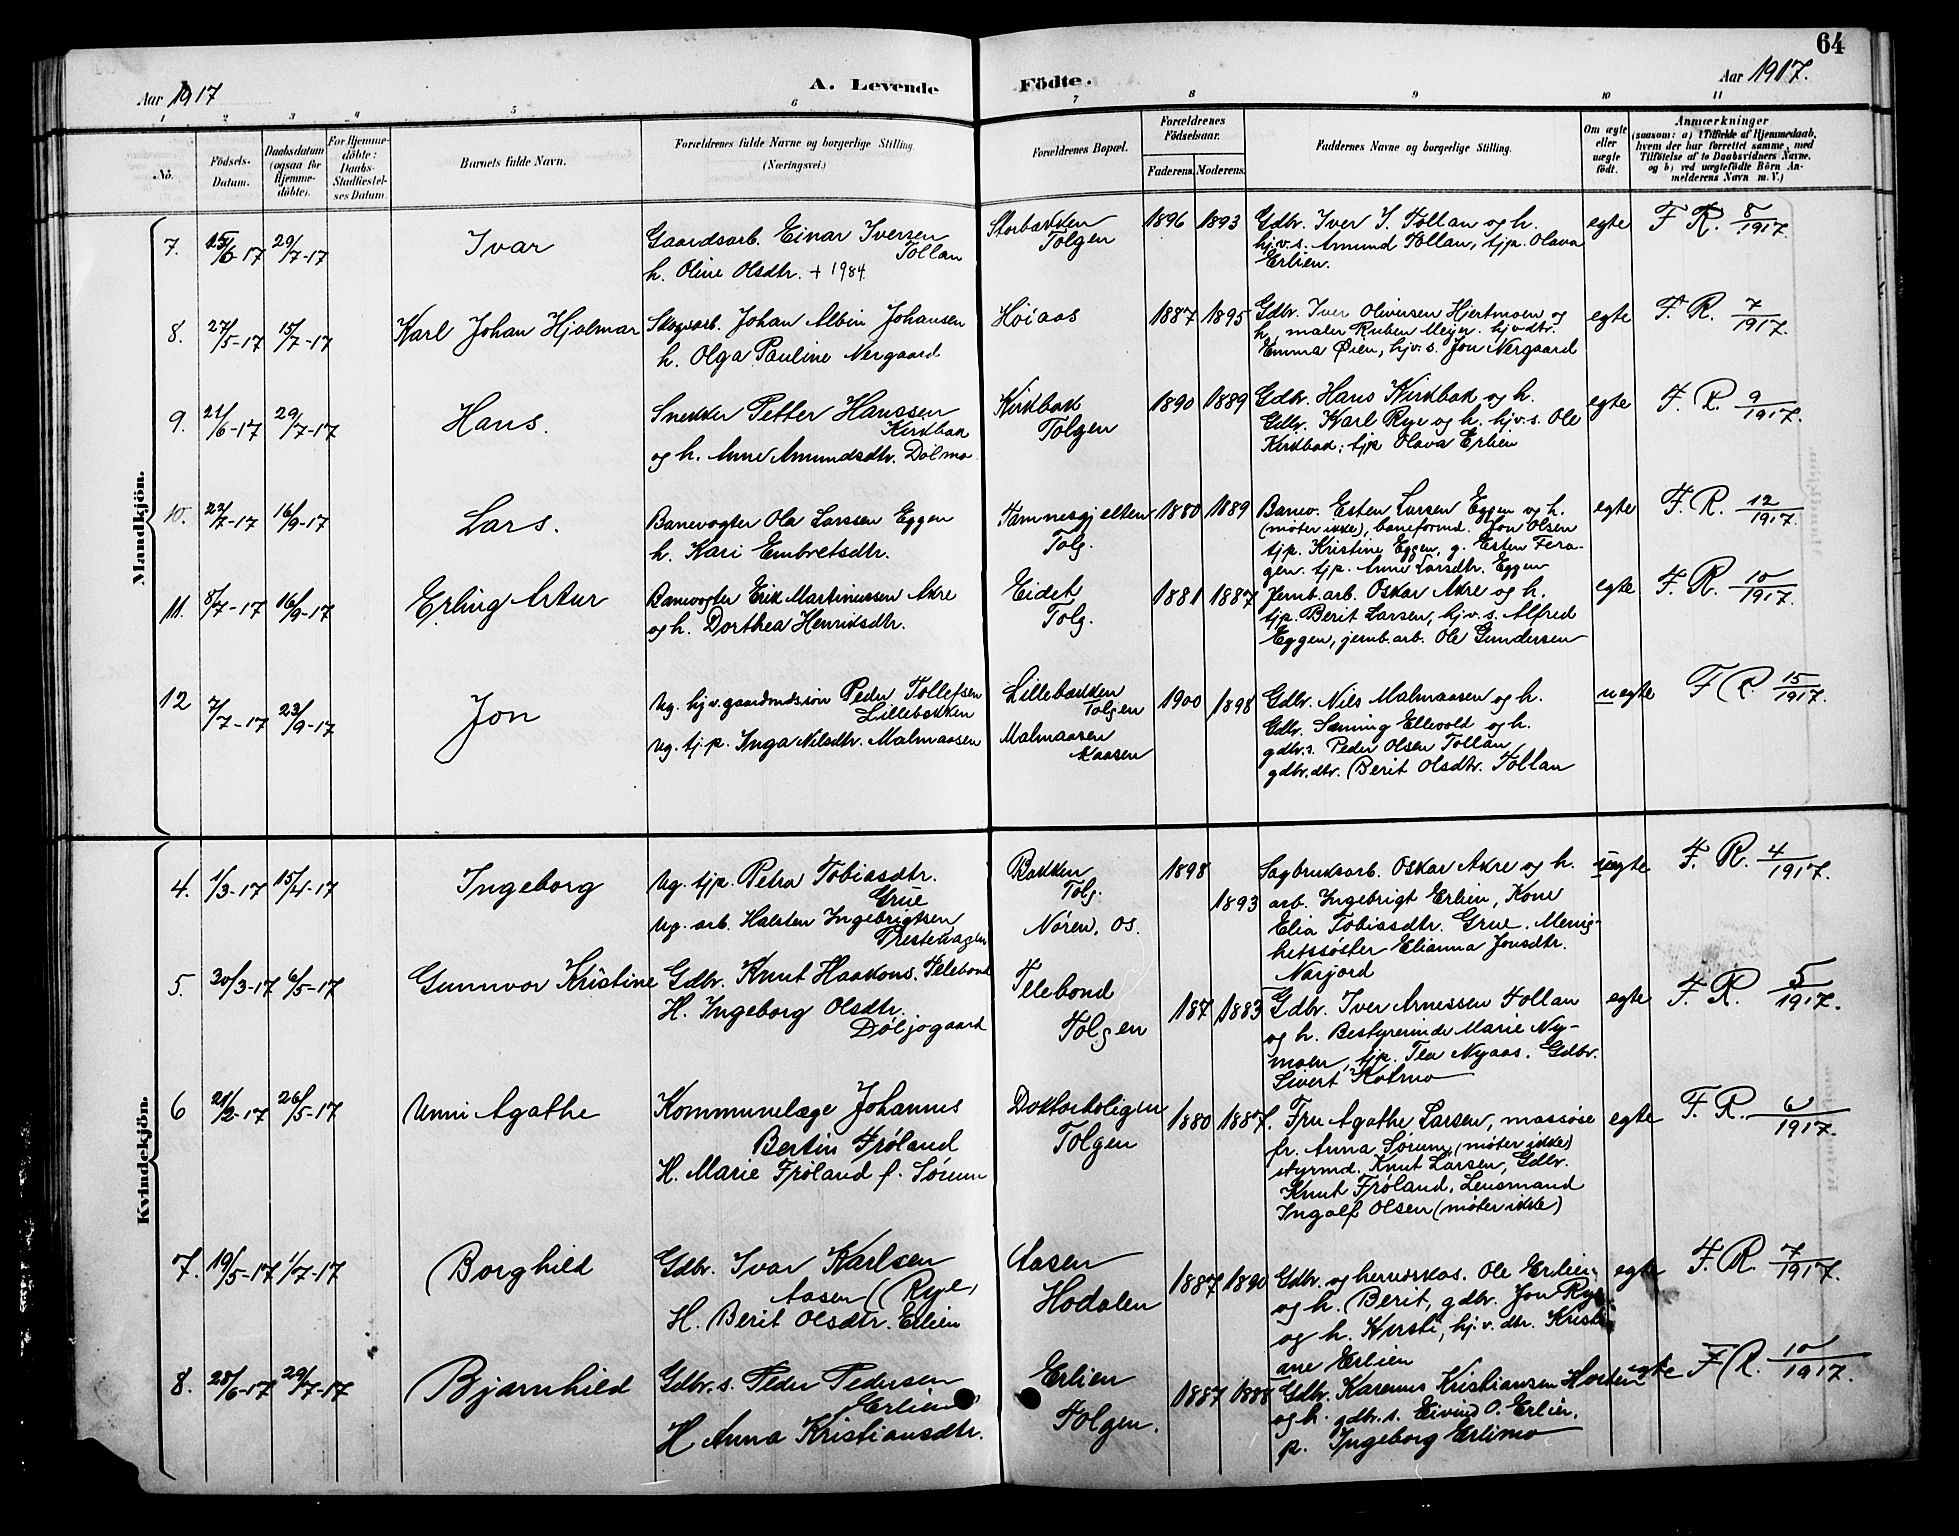 64
Aar 1917
A. Levende Födte.
Aar 1917.
1 2 3 4 5 6 7 8 9 10 11
No.
Födsels-Datum.
Daabsdatum (ogsaa for Hjemme-döbte).
For Hjemme-döbte: Daabs-Stadfæstel-ses Datum.
Barnets fulde Navn.
Forældrenes fulde Navne og borgerlige Stilling.
(Næringsvei.)
Forældrenes Bopæl.
Forældrenes Födselsaar.
Faderens. Moderens.
Faddernes Navne og borgerlige Stilling.
Om ægte eller uægte födt.
Anmærkninger
(saasom: a) i Tilfælde af Hjemmedaab, hvem der har forrettet samme, med Tilföielse af to Daabsvidners Navne, og b) ved uægtefödte Börn An-melderens Navn m. V.)
Mandkjön.
7. 15/6-17 29/7-17 Ivar
Gaardsarb. Einar Iversen
Tollan
h. Oline Olsdtr. + 1984
Storbækken
Tolgen
1896 1893
Gdbr. Iver I. Tollan og h.
hjv.s. Amund Tollan, tjp. Olava
Erlien.
egte F. R. 8/1917.
8. 27/5-17 15/7-17 Karl Johan Hjalmar
Skogsarb. Johan Albin Johansen
h. Olga Pauline Nergaard
Høiaas
1887 1895
Gdbr. Iver Oliversen Hjertmoen og
h, maler Ruben Meyer. hjvdtr.
Emma Øien, hjv.s. Jon Nergaard
egte F. R. 7/1917.
9. 21/6-17 29/7-17 Hans.
Snekker Petter Hanssen
Kirkbak
og h. Anne Amundsdtr. Dølmo
Kirkbak
Tolgen
1890 1889
Gdbr. Hans Kirkbak og h.
Gdbr. Karl Rye og h. hjv.s. Ole
Kirkbak, tjp Olava Erlien
egte F. R. 9/1917.
10. 22/7-17 16/9-17 Lars.
Banevogter Ola Larssen Eggen
h. Kari Embretsdtr.
Tamnesgjelten
Tolg.
1880 1889
Banev. Esten Larsen Eggen og h.
(møter ikke), baneformd. Jon Olsen
tjp. Kristine Eggen, g. Esten Fera-
gen. tjp. Anne Larsdtr. Eggen
egte F. R. 12/1917.
11. 8/7-17 16/9-17 Erling Artur
Banevogter Erik Martinussen Akre
og h. Dorthea Henriksdtr.
Eidet
Tolg.
1881 1887
Jernb.arb. Oskar Akre og h.
tjp. Berit Larsen, hjv.s. Alfred
Eggen, jernb.arb. Ole Gundersen
egte F. R. 10/1917.
12 7/7-17 23/9-17 Jon
Ug. hjv. gaardmdssøn Peder Tollefsen
Lillebækken
Ug. tj.p. Inga Nilsdtr. Malmaasen
Lillebækken
Tolgen
Malmaasen
1900 1898
Gdbr. Nils Malmaasen og h.
Gdbr. Sæming Ellevold og h.
gdbr.s. Peder Olsen Tollan
gdbr.dtr. Berit Olsdtr. Tollan
uegte F. R. 15/1917.
Kvindekjön.
4. 1/3-17 15/4-17 Ingeborg
Ug. tjp. Petra Tobiasdtr.
Grue
Ug. arb. Halsten Ingebrigtsen
Prestehagen
Bakken
Tolg.
Nøren, Os.
1898
1893
Sagbruksarb. Oskar Akre og h.
arb. Ingebrigt Erlien, Kone
Elia Tobiasdtr. Grue. Menig-
hetssøster Elianna Jonsdtr.
Narjord
uegte F. R. 4/1917.
5. 30/3-17 6/5-17 Gunnvor Kristine
Gdbr. Knut Haakons. Telebond
H. Ingeborg Olsdtr.
Døljogaard
Telebond
Tolgen
187 1883
Gdbr. Iver Arnessen Tollan
og h. Bestyrerinde Marie Ny-
moen, tjp. Tea Nyaas. Gdbr.
Sivert Kotmo
egte F. R. 5/1917.
6 21/2-17 26/5-17 Unni Agathe
Kommunelæge Johannes
Bertin Frøland
H. Marie Frøland f. Sørum
Doktorboligen
Tolgen
1880 1887.
Fru Agathe Larsen, massøse
fr. Anna Sørum, (møter ikke)
styrmd. Knut Larsen, Gdbr.
Knut Frøland, Lensmand
Ingolf Olsen (møter ikke)
egte F. R. 6/1917.
7. 19/5-17 1/7-17 Borghild
Gdbr. Ivar Karlsen
Aasen (Rye)
H. Berit Olsdtr. Erlien
Aasen
Hodalen
1887 1890
Gdbr. og herredskas. Ole Erlien
og h. Berit, gdbr. Jon Rye
og h. Kirsti, hj.v. dtr. Kristi-
ane Erlien
egte F. R. 7/1917.
8. 28/6-17 29/7-17 Bjarnhild
Gdbr.s. Peder Pedersen
Erlien
H Anna Kristiansdtr.
Erlien
Tolgen.
1887 1888
Gdbr. Karenus Kristiansen
og h. gdbr.s. Eivind O. Erlien,
p. Ingeborg Erlimo
egte F. R. 10/1917.